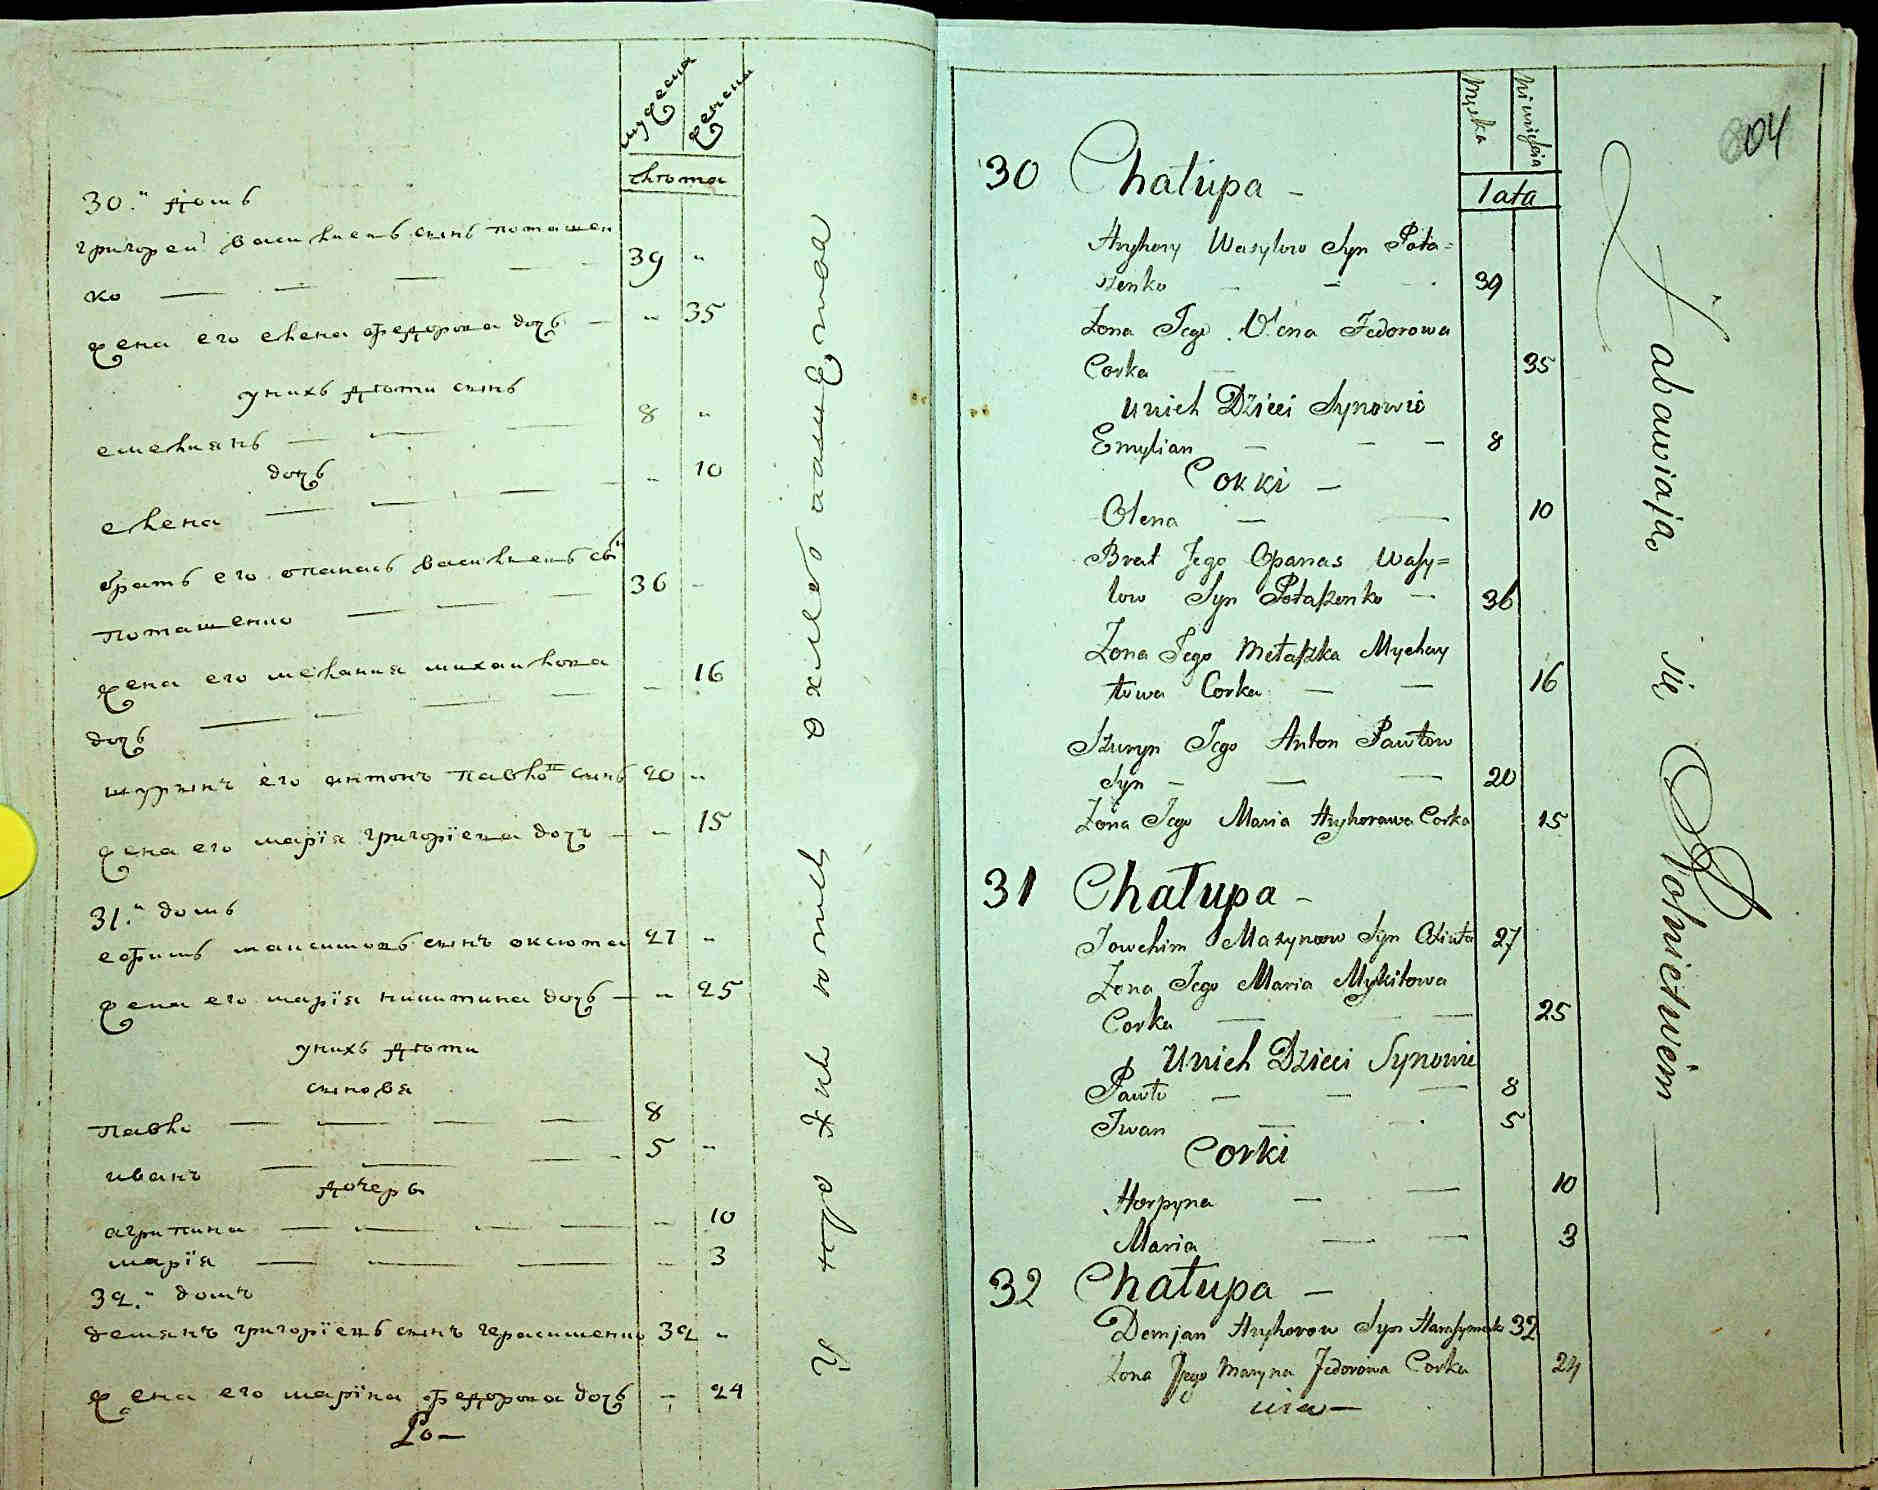 мужеска
женска
лѣта
30.й домъ
григорей василиевъ синъ поташен
ко
39
жена его елена федорова дочь
35
у нихъ дѣти синъ
емелиянъ
8
дочь
елена
10
братъ его опанасъ василиевъ си
поташенко
36
жена его мелания михаилова
16
дочь
шуринъ его антонъ павло синъ 20
жена его мария григориева дочь 15
31.й домъ
ефимъ максимовъ синъ оксюта 27
жена его мария никитина дочь 25
у нихъ дѣти
синовя
павло 8
иванъ 5
дочеры
агрипина 10
мария 3
32.й домъ
демянъ григориевъ синъ герасименко 32
жена его марина федорова дочь 24
804
Męska
lata
30 Chałupa
Hryhory Wasylow Syn Pota=
szenko 39
Zona Jego Olena Fedorowa
Corka 35
Unich Dzieci Synowie
Emylian 8
Corki
Olena 10
Brat Jego Opanas Wasy=
low Syn Potaszenko 36
Zona Jego Melaszka Mychay
łowa Corka 16
Szuryn Jego Anton Pawłow
Syn 20
Zona Jego Maria Hryhorowa Corka 15
31 Chałupa
Jowchim Syn 27
Zona Jego Maria Mykitowa
Corka 25
Unich Dzieci Synowie
Pawło 8
Iwan 5
Corki
Horpyna 10
Maria 3
32 Chałupa
Demjan Hryhorow Syn Harasymenko 32
Zona Jego Maryna Fedorowa Corka 24
Zabawiają się Rolnictwem